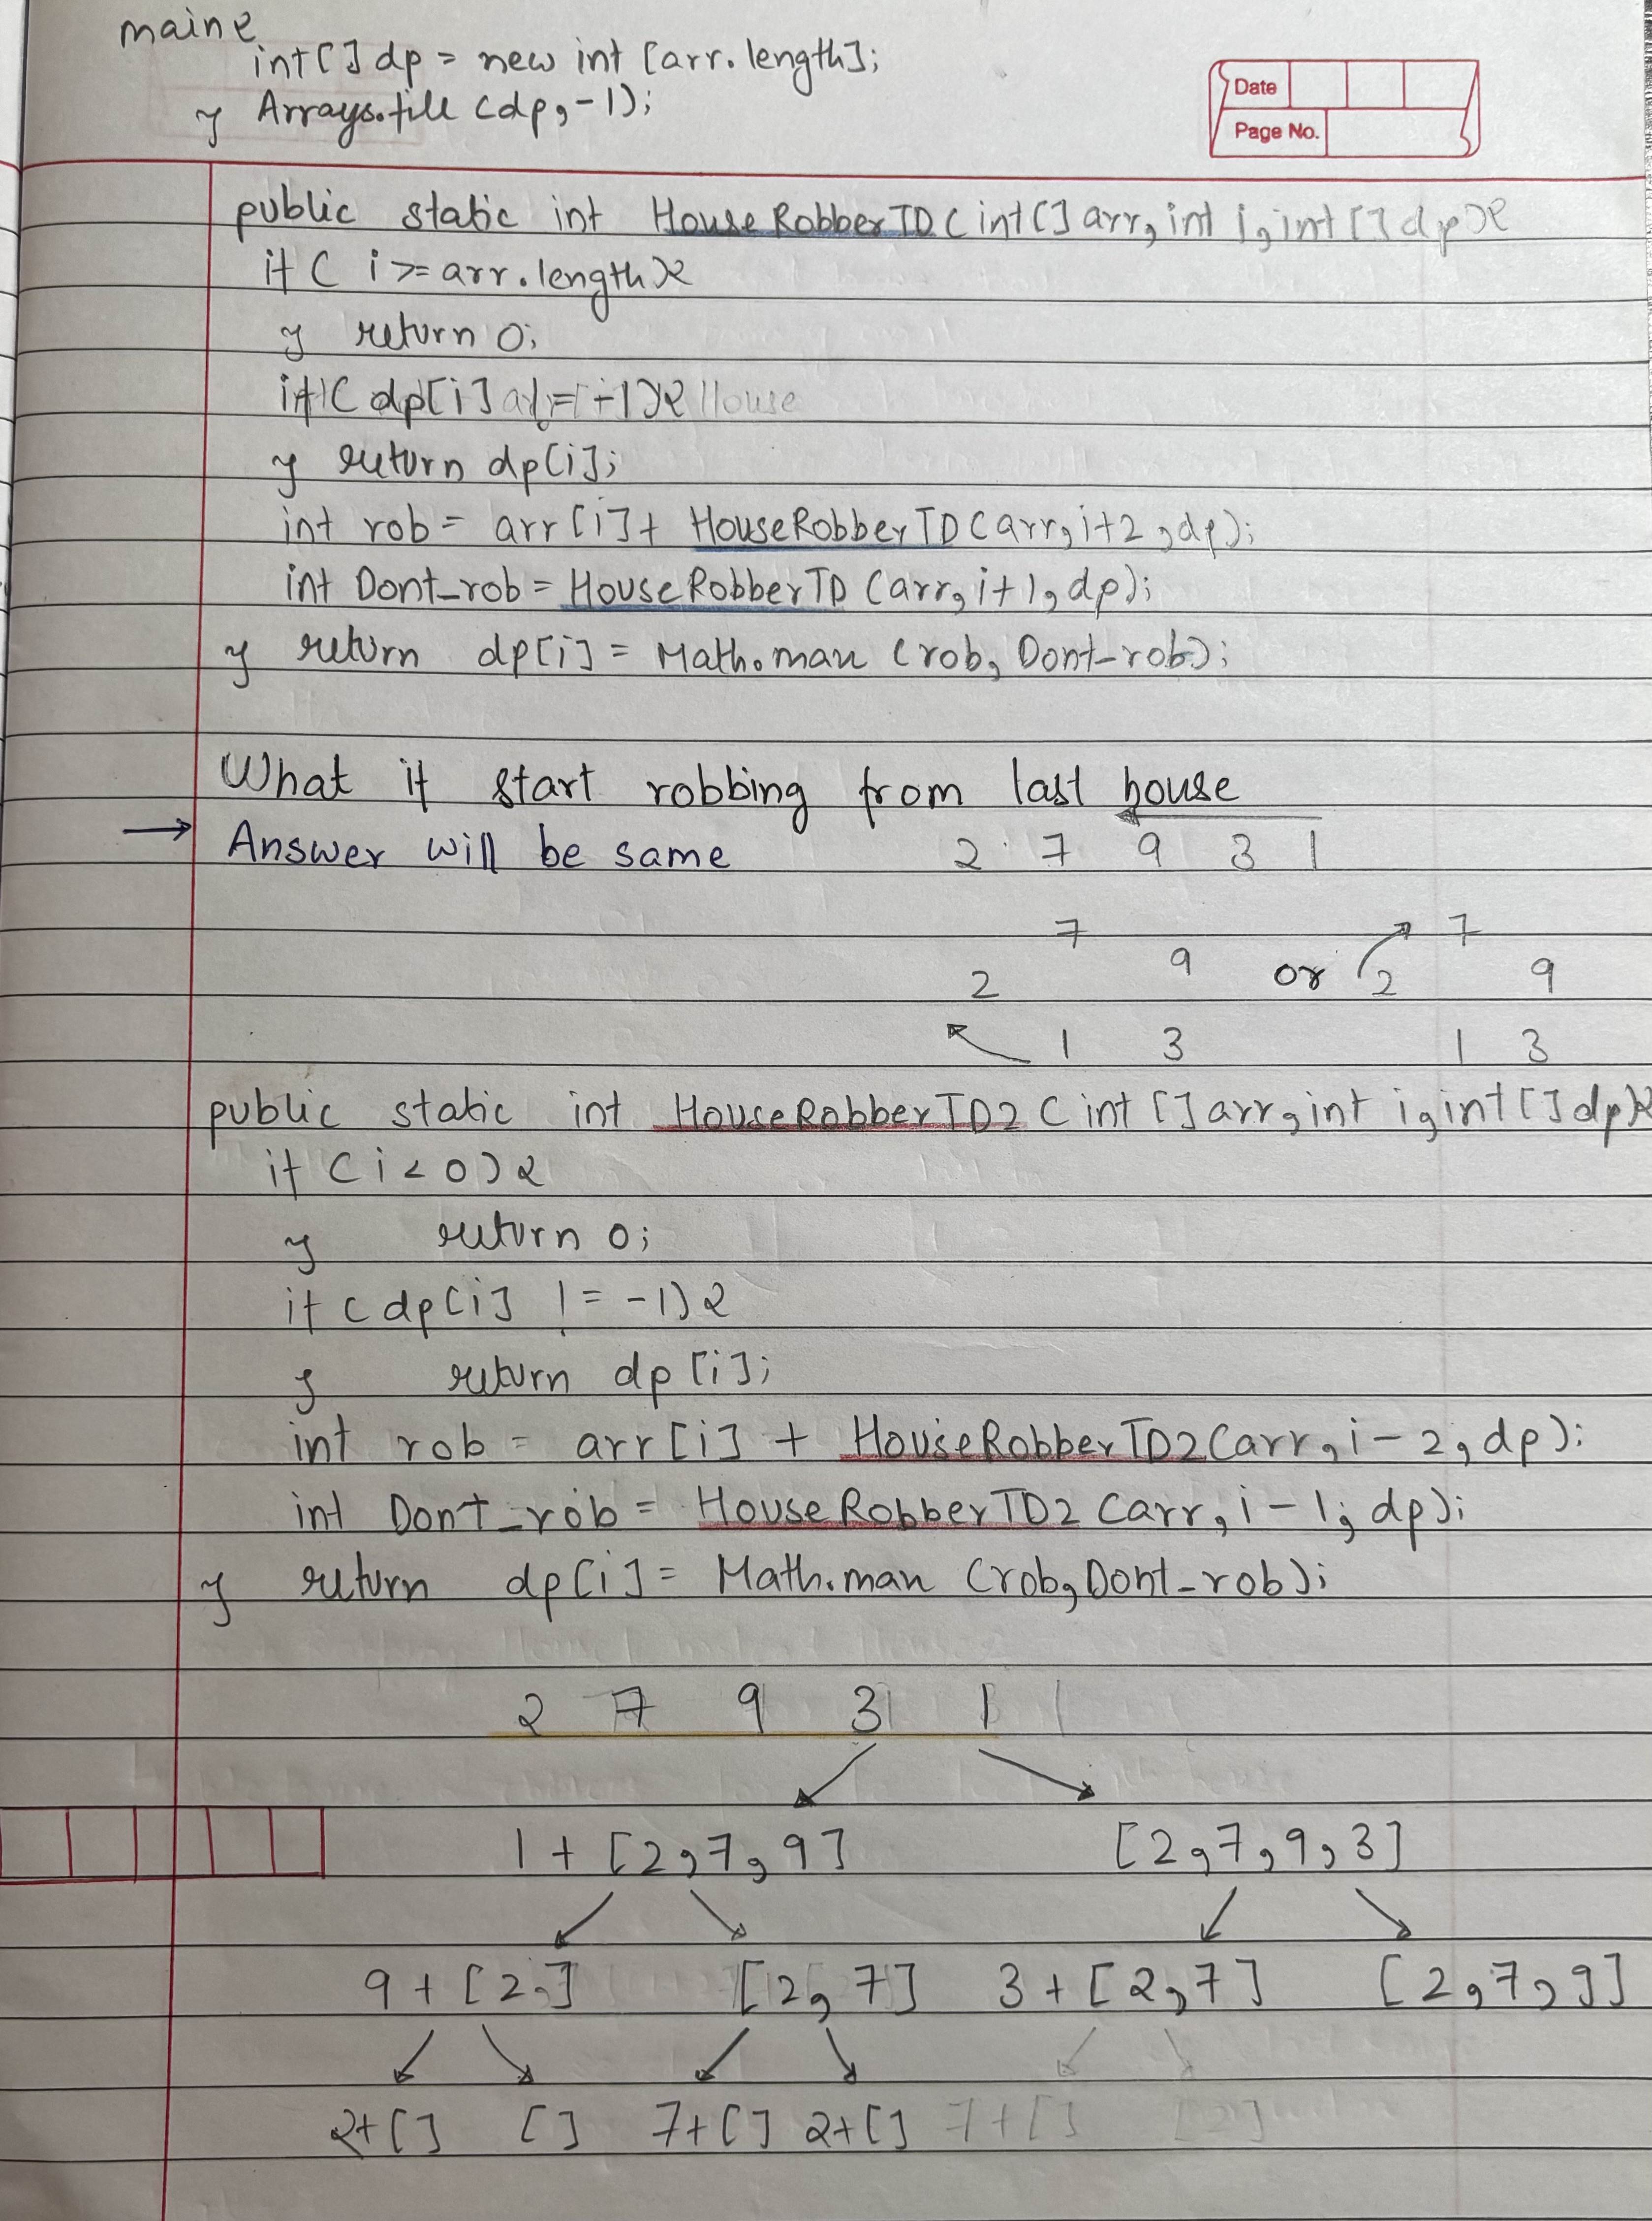 main{
int[] dp = new int [arr.length];
} Arrays.fill (dp,-1);
Date
Page No.
public static int HouseRobberTD(int[] arr, int i, int[] dp){
if( i >= arr.length){
} return 0;
if( dp[i] != -1){
} return dp[i];
int rob = arr[i]+ HouseRobberTD(arr, i+2, dp);
int Dont_rob = HouseRobberTD (arr, i+1, dp);
} return dp[i] = Math.max (rob, Dont_rob);
What if start robbing from last house
→ Answer will be same 2 7 9 3 1
7 7
2 9 or 2 9
1 3 1 3
public static int HouseRobberTD2(int[] arr, int i, int[] dp){
if(i<0){
} return 0;
if(dp[i] != -1){
} return dp[i];
int rob = arr[i] + HouseRobberTD2(arr, i-2, dp);
int Dont_rob = HouseRobberTD2(arr, i-1, dp);
} return dp[i] = Math.max (rob, Dont_rob);
2 7 9 3 1
1 + [2,7,9] [2,7,9,3]
9 + [2] [2,7] 3 + [2,7] [2,7,9]
2+[] [] 7+[] 2+[] 7+[] [2]